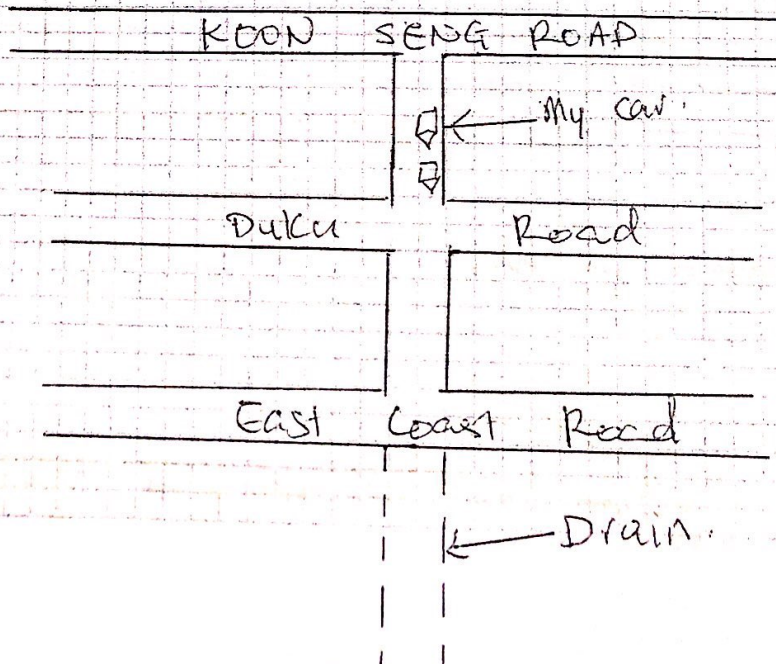 KOON SENG ROAD
My car.
Duku Road
East Coast Road
Drain.